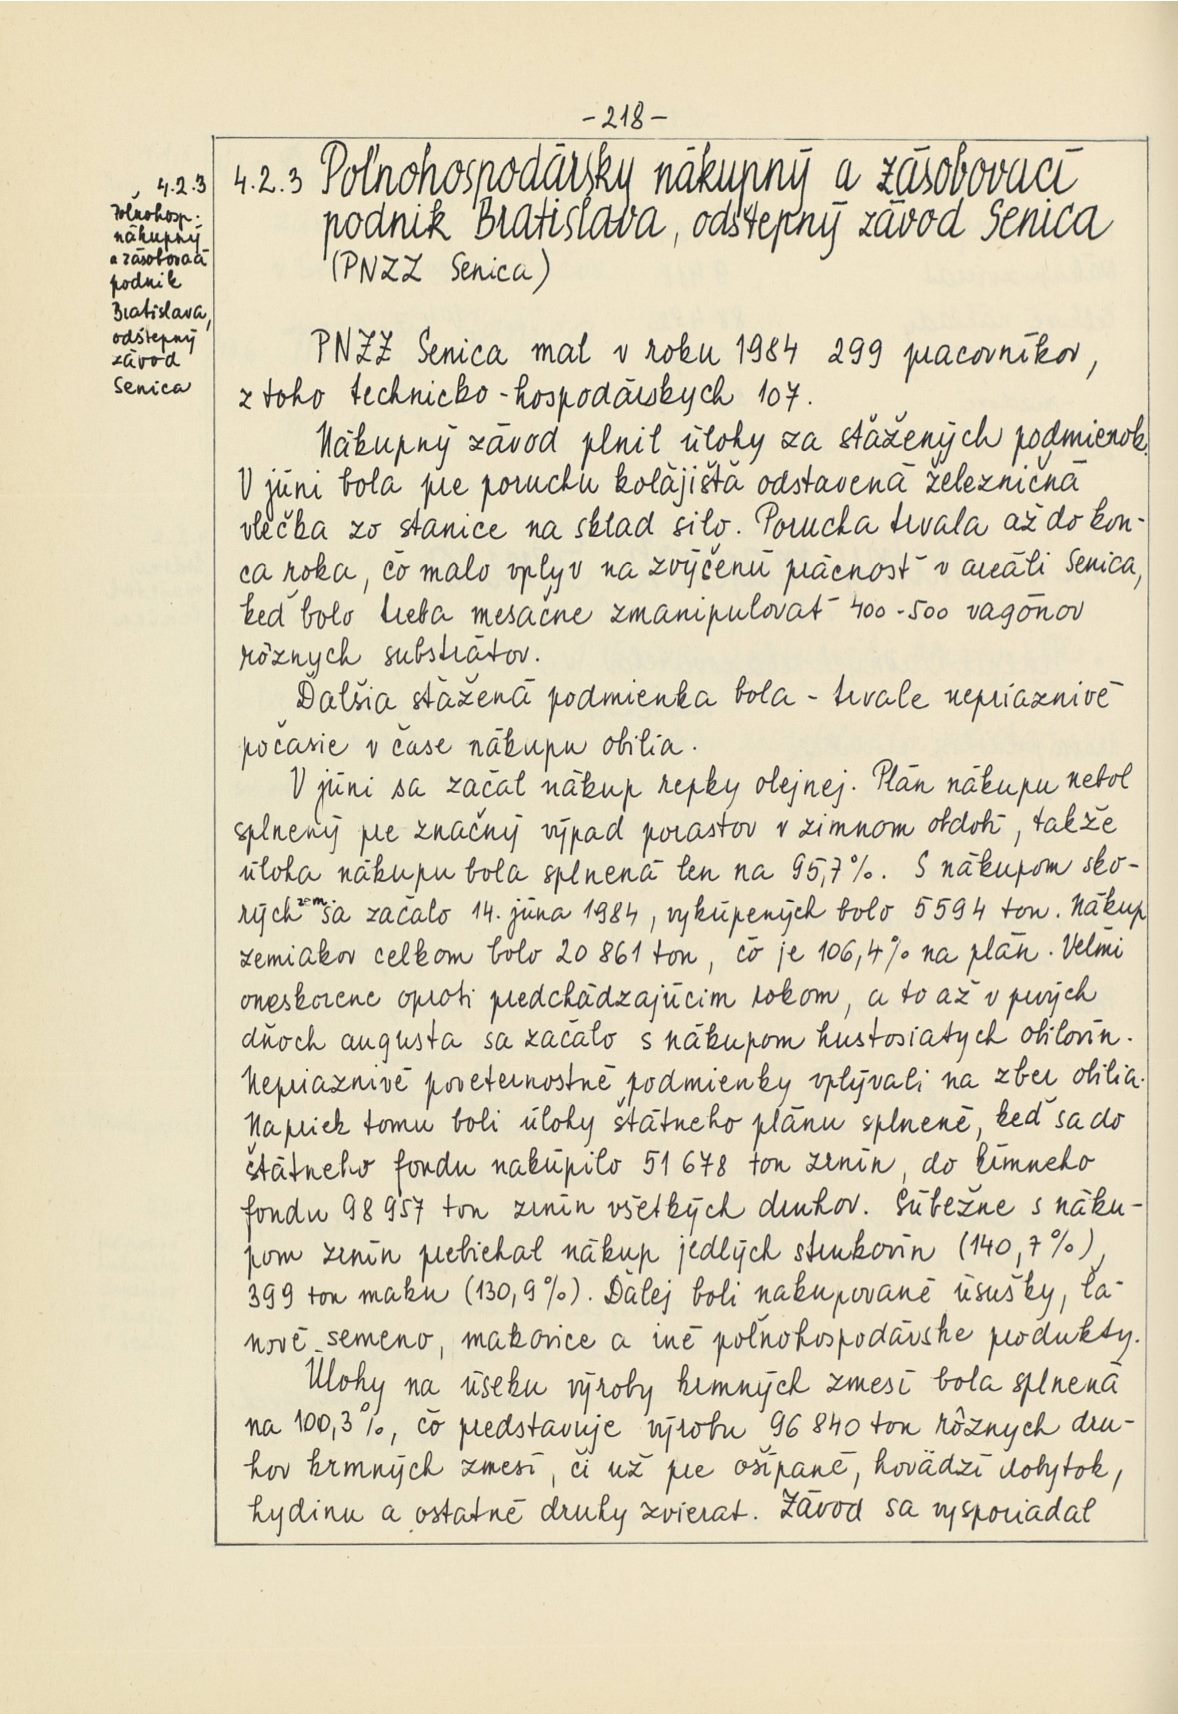 -218-
4.2.3
Poľnohosp.
nákupný
a zásobovací
podnik
Bratislava,
odštepný
závod
Senica
4.2.3 Poľnohospodársky nákupný a zásobovací
podnik Bratislava, odštepný závod Senica
(PNZZ Senica)
PNZZ Senica mal v roku 1984 299 pracovníkov,
z toho technicko-hospodárskych 107.
Nákupný závod plnil úlohy za stážených podmienok.
V júni bola pre poruchu kolajištá odstavená železničná
vlečka zo stanice na sklad silo. Porucha trvala až do kon-
ca roka, čo malo vplyv na zvýčenú prácnosť v areáli Senica,
keď bolo treba mesačne zmanipulovať 400-500 vagónov
rôznych substrátov.
Ďalšia stážená podmienka bola - trvale nepriaznivé
počasie v čase nákupu obilia.
V júni sa začal nákup repky olejnej. Plán nákupu nebol
splnený pre značný výpad porastov v zimnom období, takže
úloha nákupu bola splnená len na 95,7%. S nákupom sko-
rých zem. sa začalo 14. júna 1984, vykúpených bolo 5594 ton. Nákup
zemiakov celkom bolo 20 861 ton, čo je 106,4% na plán. Veľmi
oneskorene oproti predchádzajúcim rokom, a to až v prvých
dňoch augusta sa začalo s nákupom hustosiatych obilovín.
Nepriaznivé poveternostné podmienky vplývali na zber obilia.
Napriek tomu boli úlohy štátneho plánu splnené, keď sa do
štátneho fondu nakúpilo 51 678 ton zrnín, do kŕmneho
fondu 98 957 ton zrnín všetkých druhov. Súbežne s náku-
pom zrnín prebiehal nákup jedlých strukovín (140,7%),
399 ton maku (130,9%). Ďalej boli nakupované úsušky, ľa-
nové semeno, makovice a iné poľnohospodárske produkty.
Úlohy na úseku výroby krmných zmesí bola splnená
na 100,3%, čo predstavuje výrobu 96 840 ton rôznych dru-
hov krmných zmesí, či už pre ošípané, hovädzí dobytok,
hydinu a ostatné druhy zvierat. Závod sa vysporiadal